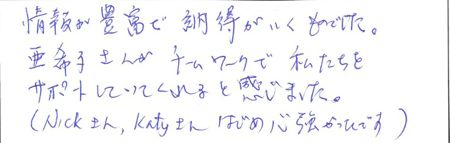 情報が豊富で納得がいくものでした。
亜希子さんがチームワークで私たちを
サポートしていてくれると感じました。
(Nickさん, Katyさん はじめ心強かったです)